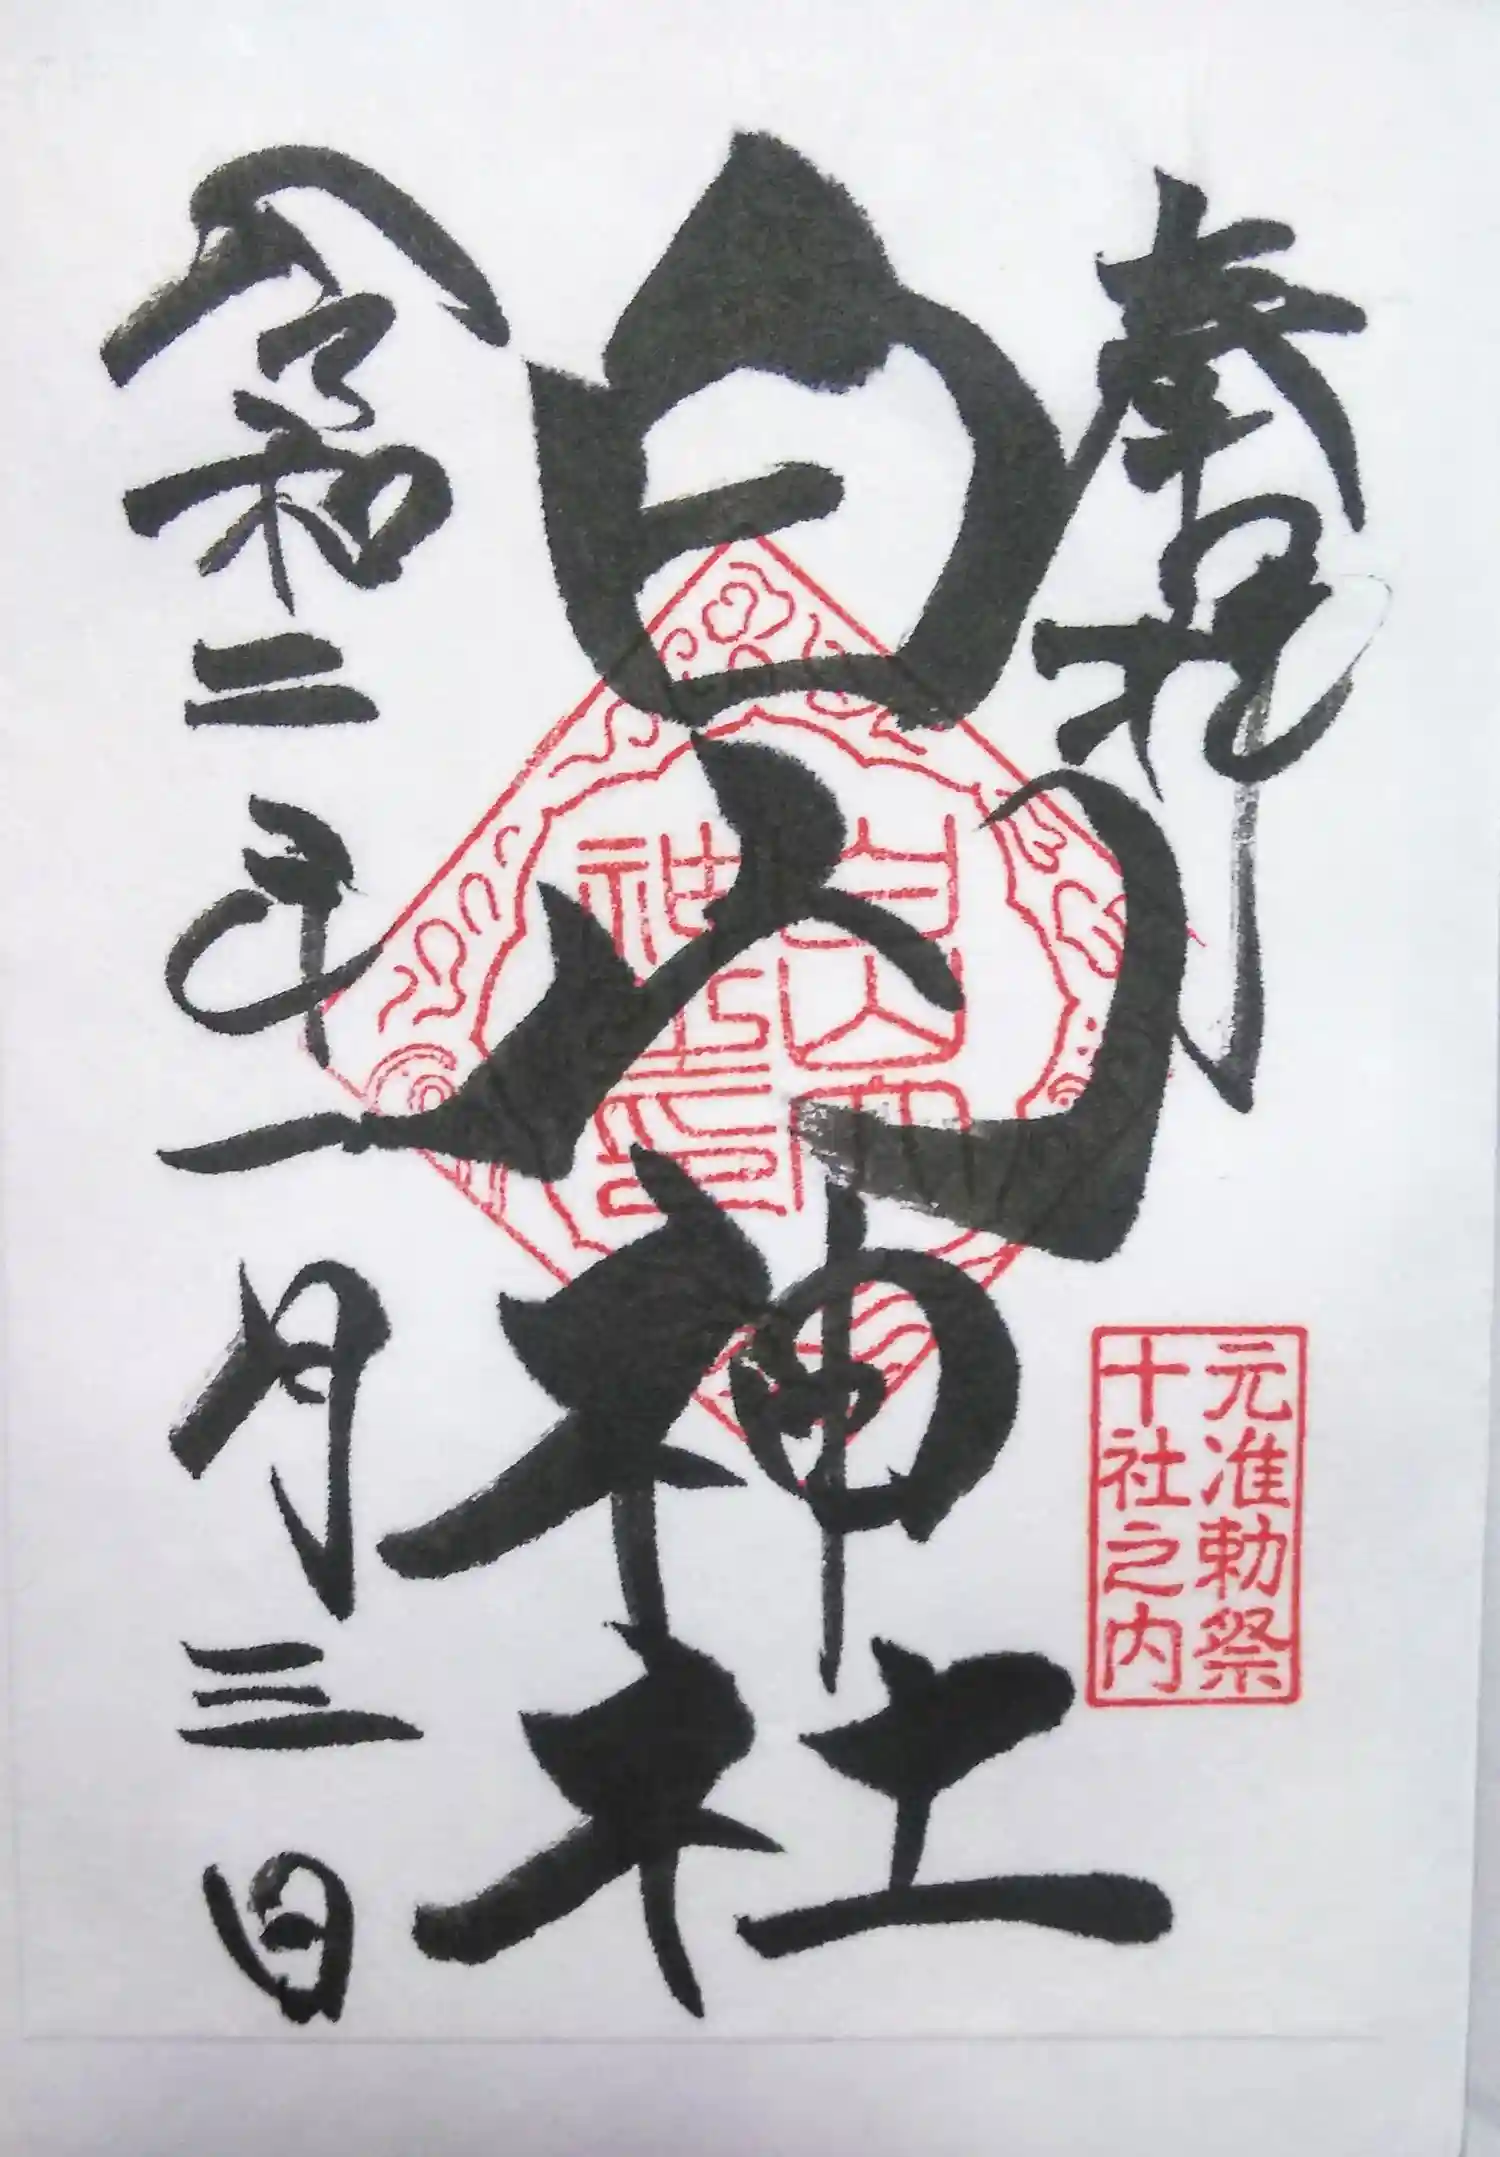 奉拝
元准勅祭
十社之内
白山神社
白山神社印
令和二年一月三日